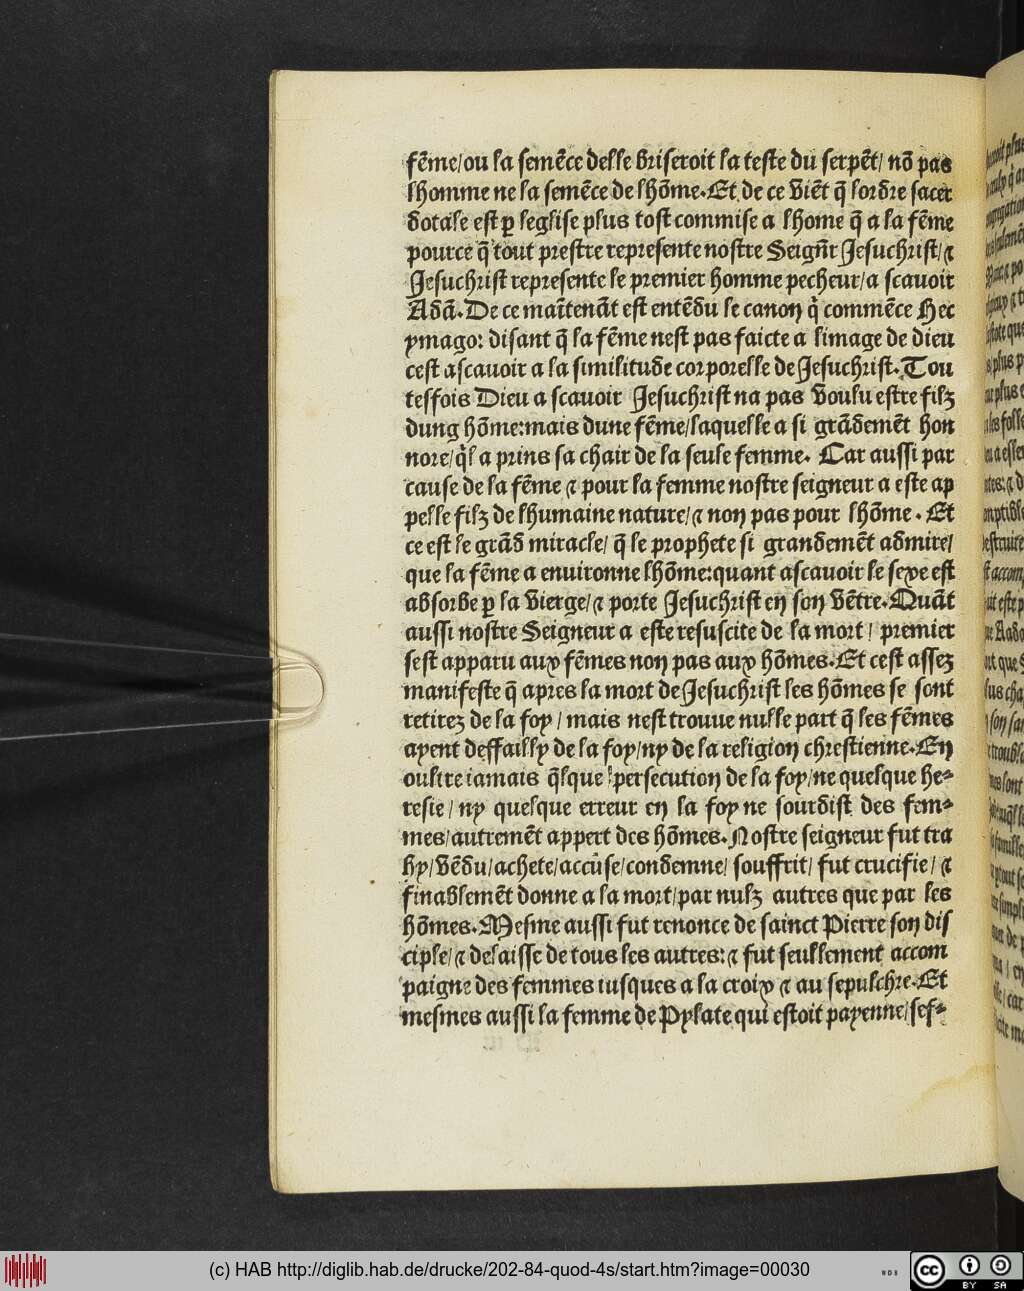 fẽme/ou la semẽce delle briseroit la teste du serpẽt/ nõ pas
lhomme ne la semẽce de lhõme. Et de ce viẽt q̃ lordre sacer
dotale est ꝑ leglise plus tost commise a lhome q̃ a la fẽme
pource q̃ tout prestre represente nostre Seignr̃ Jesuchrist/⁊
Jesuchrist represente le premier homme pecheur/a scauoir
Adã. De ce mait̃enãt est entẽdu le canon q̃ commẽce Hec
ymago: disant q̃ la fẽme nest pas faicte a limage de dieu
cest ascauoir a la similitude corporelle de Jesuchrist. Tou
teffois Dieu a scauoir Jesuchrist na pas voulu estre filz
dung hõme: mais dune fẽme/laquelle a si grãdemẽt hon
nore/q̃l a prins sa chair de la seule femme. Car aussi par
cause de la fẽme ⁊ pour la femme nostre seigneur a este ap
pelle filz de lhumaine nature/⁊ non pas pour lhõme. Et
ce est le grãd miracle/ q̃ le prophete si grandemẽt admire/
que la fẽme a enuironne lhõme:quant ascauoir le sexe est
absorbe ꝑ la vierge/⁊ porte Jesuchrist en son vẽtre. Quãt
aussi nostre Seigneur a este resuscite de la mort/ premier
sest apparu aux fẽmes non pas aux hõmes. Et cest assez
manifeste q̃ apres la mort de Jesuchrist les hõmes se sont
retirez de la foy/ mais nest trouue nulle part q̃ les fẽmes
ayent deffailly de la foy/ny de la religion chrestienne. En
oultre iamais q̃lque persecution de la foy/ne quelque he⸗
resie/ ny quelque erreur en la foy ne sourdist des fem⸗
mes/autremẽt appert des hõmes. Nostre seigneur fut tra
hy/vẽdu/achete/accuse/condemne/ souffrit/ fut crucifie/ ⁊
finablemẽt donne a la mort/par nulz autres que par les
hõmes. Mesme aussi fut renonce de sainct Pierre son dis
ciple/⁊ delaisse de tous les autres:⁊ fut seullement accom
paigne des femmes iusques a la croix ⁊ au sepulchre. Et
mesmes aussi la femme de Pylate qui estoit payenne/sef⸗
(c) HAB http://diglib.hab.de/drucke/202-84-quod-4s/start.htm?image=00030
cc BY SA